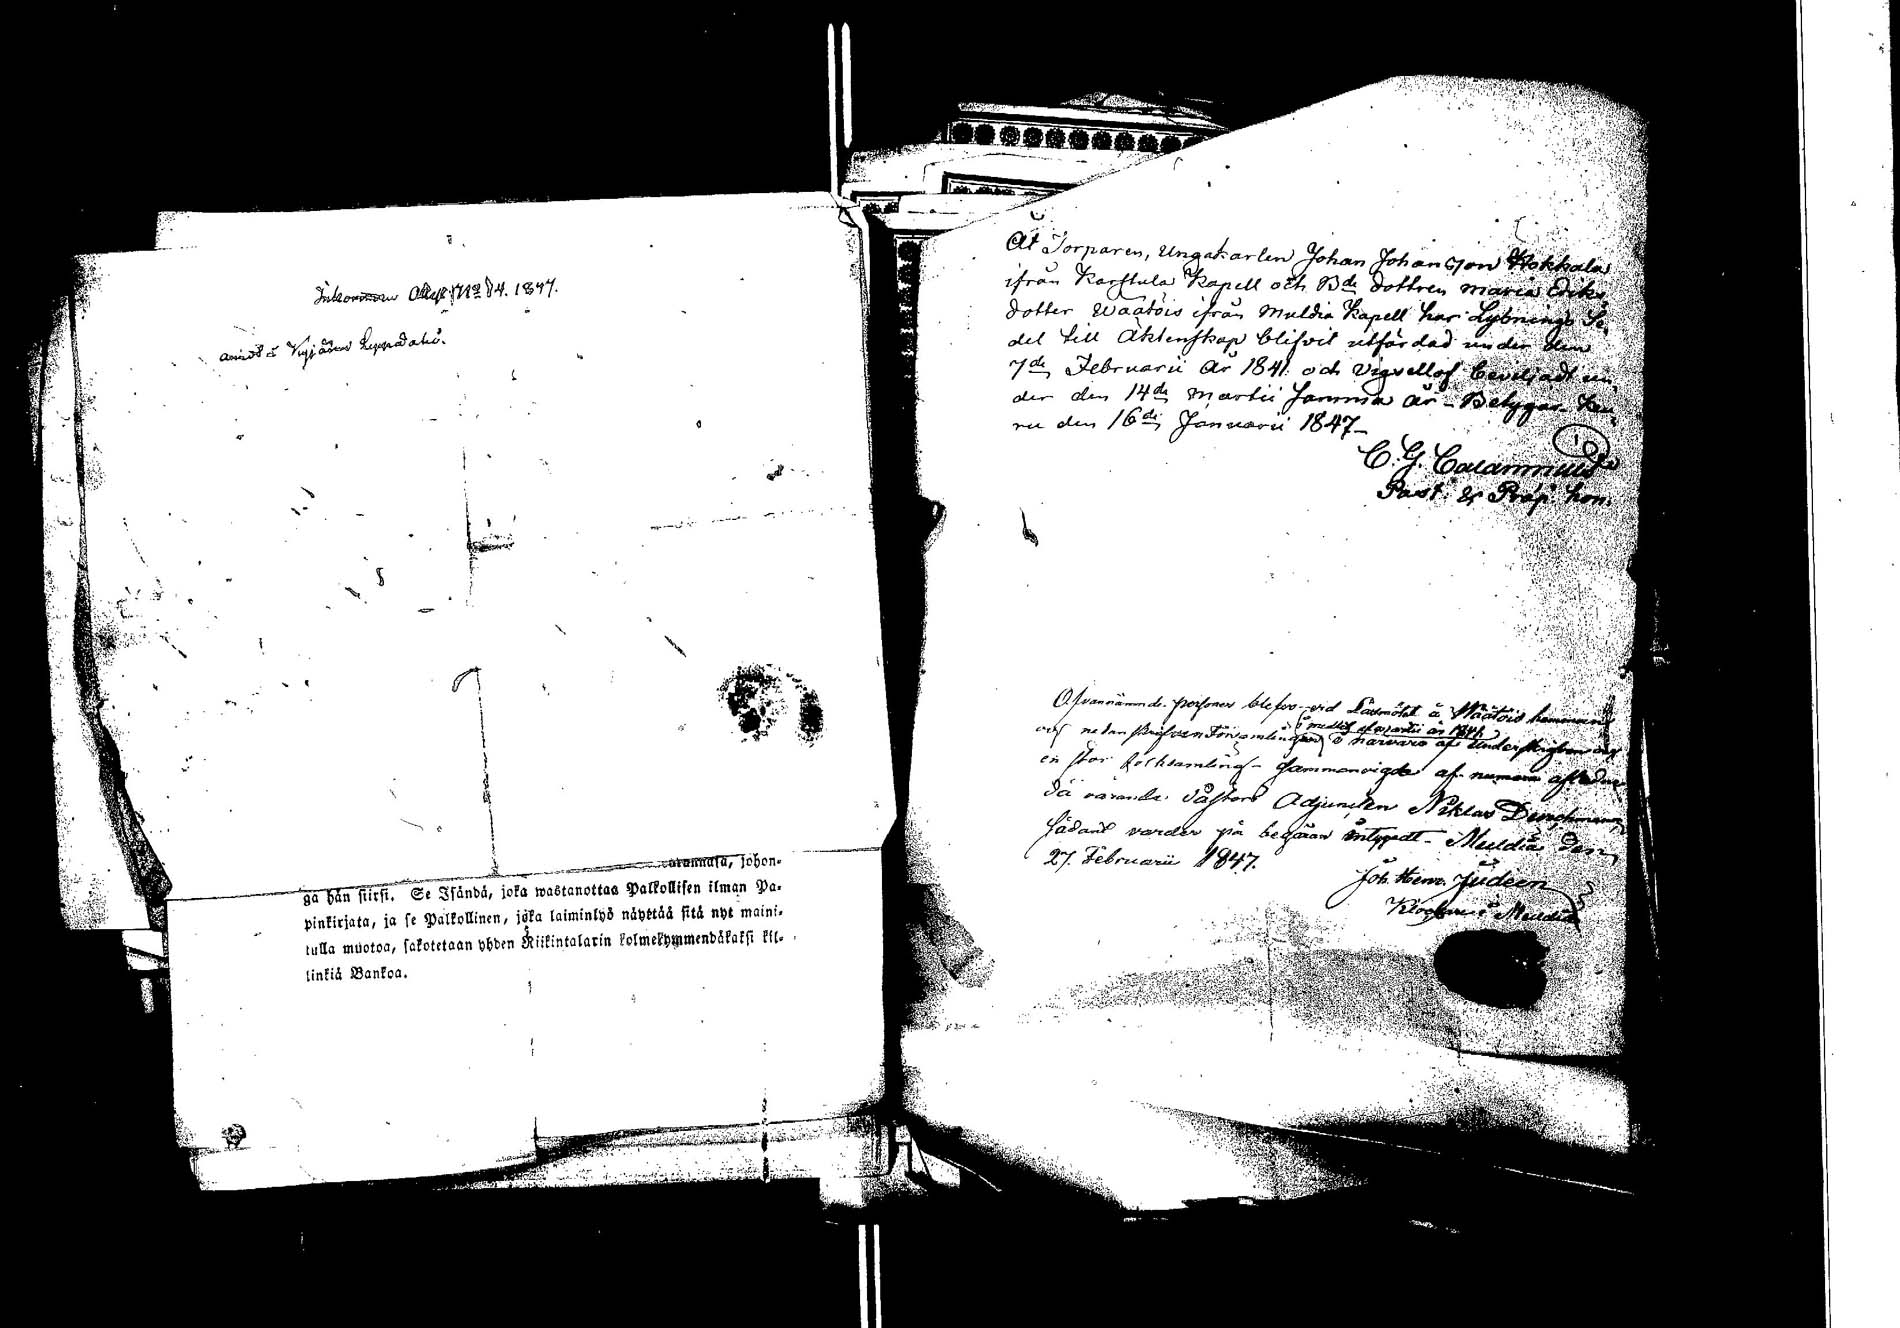 Inkommen 1847.
anmält å Kyjärvi Leppäaho.
arannasa, johon-
ga hän siirsi. Se Isändä, joka wastanottaa Palkollisen ilman Pa-
pinkirjata, ja se Palkollinen, joka laiminlyö näyttää sitä nyt maini-
tulla muotoa, sakotetaan yhden Riikintalarin kolmekymmendäkaksi kil-
linkiä Bankoa.
At Torparen, Ungakarlen Johan Johansson Kokkala
ifrån Karstula Kapell och Bde dottren Maria Eriks
dotter Wäätöis ifrån Muldia Kapell har Lysnings Se
del till Äktenskap blifvit utfärdad under den
7de Februarii År 1841 och vigsel beviljadt un
der den 14de Martii samma år - Betygar. Keu
ru den 16de Januarii 1847-
C. G. Calamnius
Past. & Præp. hon.
Ofvannämnde personer blefvo vid Läsmötet å Wäätöis hemman
i medlet af Martii år 1841
nedanskrifven Församling i närvaro af Undertecknad och
en stor folksamling - sammanvigde af numera aflidne
då varande Pastors Adjuncten Niklas
sådant varder på begäran intygadt - Muldia den
27. Februarii 1847.
Joh. Henr. Judeen
Klockare i Muldia